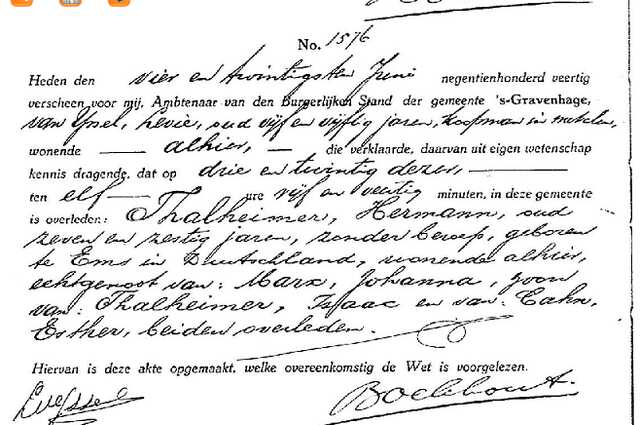 No. 1576
Heden den vier en twintigsten Juni negentienhonderd veertig
verscheen voor mij, Ambtenaar van den Burgerlijken Stand der gemeente 's-Gravenhage,
van IJssel, Levie, oud vijf en vijftig jaren, koopman in metalen,
wonende — alhier, — die verklaarde, daarvan uit eigen wetenschap
kennis dragende, dat op drie en twintig dezer, —
ten elf — ure vijf en veertig minuten, in deze gemeente
is overleden: Thalheimer, Hermann, oud
zeven en zestig jaren, zonder beroep, geboren
te Ems in Duitschland, wonende alhier,
echtgenoot van: Marx, Johanna, zoon
van: Thalheimer, Isaac en van: Cahn,
Esther, beiden overleden.
Hiervan is deze akte opgemaakt, welke overeenkomstig de Wet is voorgelezen.
Boekhout.